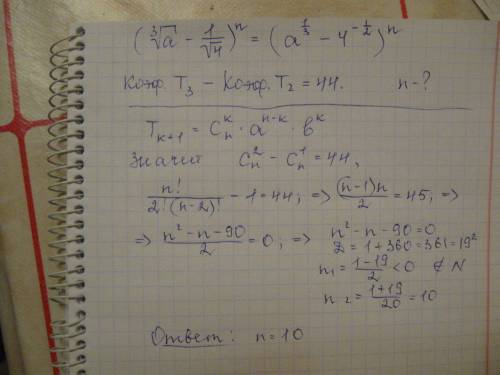 (∛a - 1/√4)ⁿ = (a^(1/3) - 4^(-1/2))ⁿ
Коэф. T₃ - Коэф. T₂ = 44. n-?
T_(k+1) = C_n^k · a^(n-k) · b^k
Значит C_n^2 - C_n^1 = 44,
n!/(2!(n-2)!) - 1 = 44; => (n-1)n/2 = 45; =>
=> (n² - n - 90)/2 = 0; => n² - n - 90 = 0
D = 1 + 360 = 361 = 19²
n₁ = (1-19)/2 < 0 ∉ N
n₂ = (1+19)/20 = 10
Ответ: n = 10